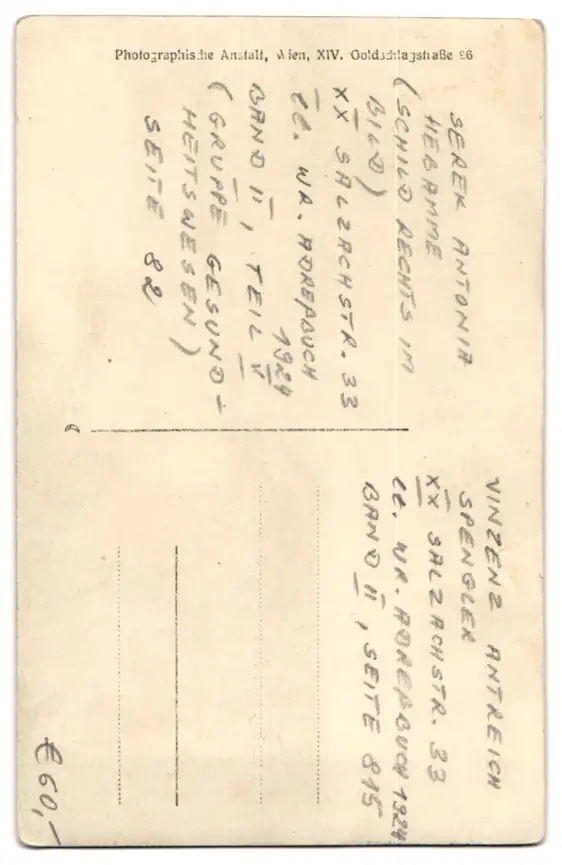 Photographische Anstalt, Wien, XIV. Goldschlagstraße 26
SEREK ANTONIA
HEBAMME
(SCHILD RECHTS IM
BILD)
XX SALZACHSTR. 33
lt. WR. ADREßBUCH
1924
BAND II, TEIL V
(GRUPPE GESUND-
HEITSWESEN)
SEITE 82
VINZENZ ANTREICH
SPENGLER
XX SALZACHSTR. 33
lt. WR. ADREßBUCH 1924
BAND II, SEITE 815
€ 60,-